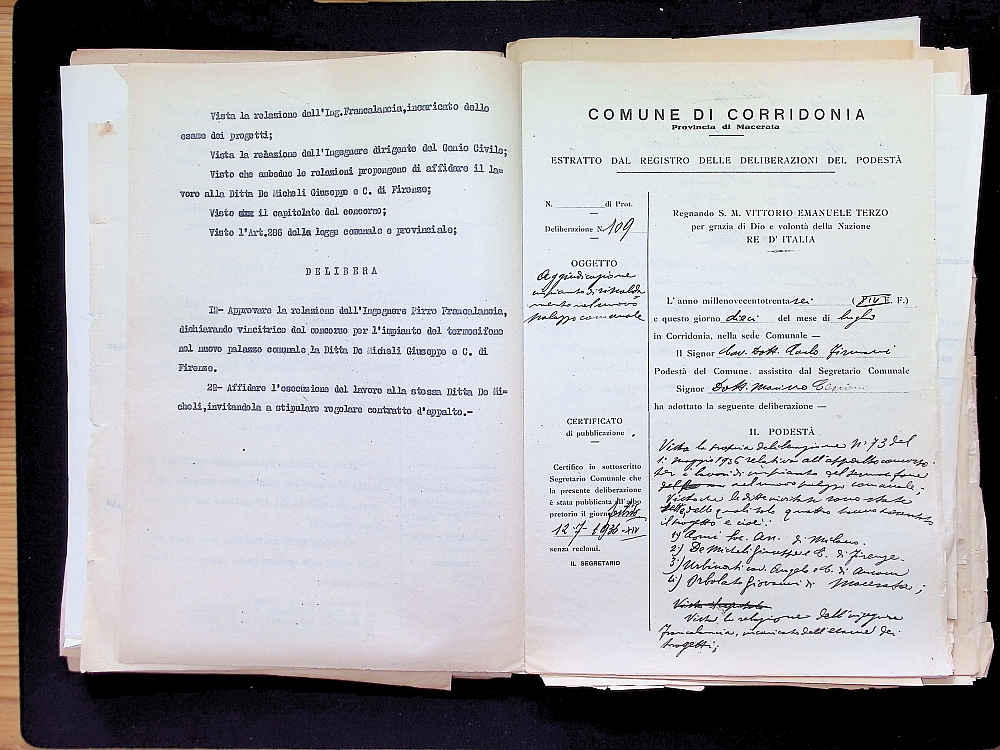 Vista la relazione dell'Ing.Francalancia,incaricato dello
esame dei progetti;
Vista la relazione dell'Ingegnere dirigente del Genio Civile;
Visto che ambedue le relazioni propongono di affidare il la=
voro alla Ditta De Micheli Giuseppe e C. di Firenze;
Visto il capitolato del concorso;
Visto l'Art.286 della legge comunale e provinciale;
DELIBERA
1º- Approvare la relazione dell'Ingegnere Pirro Francalancia,
dichiarando vincitrice del concorso per l'impianto del termosifone
nel nuovo palazzo comunale la Ditta De Micheli Giuseppe e C. di
Firenze.
2º- Affidare l'esecuzione del lavoro alla stessa Ditta De Mi=
cheli,invitandola a stipulare regolare contratto d'appalto.-
COMUNE DI CORRIDONIA
Provincia di Macerata
ESTRATTO DAL REGISTRO DELLE DELIBERAZIONI DEL PODESTÀ
N. di Prot.
Deliberazione N. 109
OGGETTO
Aggiudicazione
impianto di riscalda
mento nel nuovo
palazzo comunale
CERTIFICATO
di pubblicazione
Certifico io sottoscritto
Segretario Comunale che
la presente deliberazione
è stata pubblicata all'albo
pretorio il giorno
12-7-1936-XIV
senza reclami.
IL SEGRETARIO
Regnando S. M. VITTORIO EMANUELE TERZO
per grazia di Dio e volontà della Nazione
RE D'ITALIA
L'anno millenovecentotrentasei (XIV E. F.)
e questo giorno dieci del mese di luglio
in Corridonia, nella sede Comunale —
Il Signor Cav. Dott. Carlo
Podestà del Comune, assistito dal Segretario Comunale
Signor Dott. Marino
ha adottato la seguente deliberazione —
IL PODESTÀ
Vista la propria deliberazione Nº 73 del
1º maggio 1936 relativa all'appalto concorso
per i lavori di impianto del termosifone
nel nuovo palazzo comunale;
Visto che le ditte invitate sono state
sette, delle quali solo quattro hanno
il progetto e cioè:
1) Soc. An. di Milano.
2) De Micheli Giuseppe e C. di Firenze.
3) Urbinati cav. Angelo e C. di Ancona
4) Giovanni di Macerata;
Vista la relazione dell'ingegnere
Francalancia, incaricato dell'esame dei
progetti;